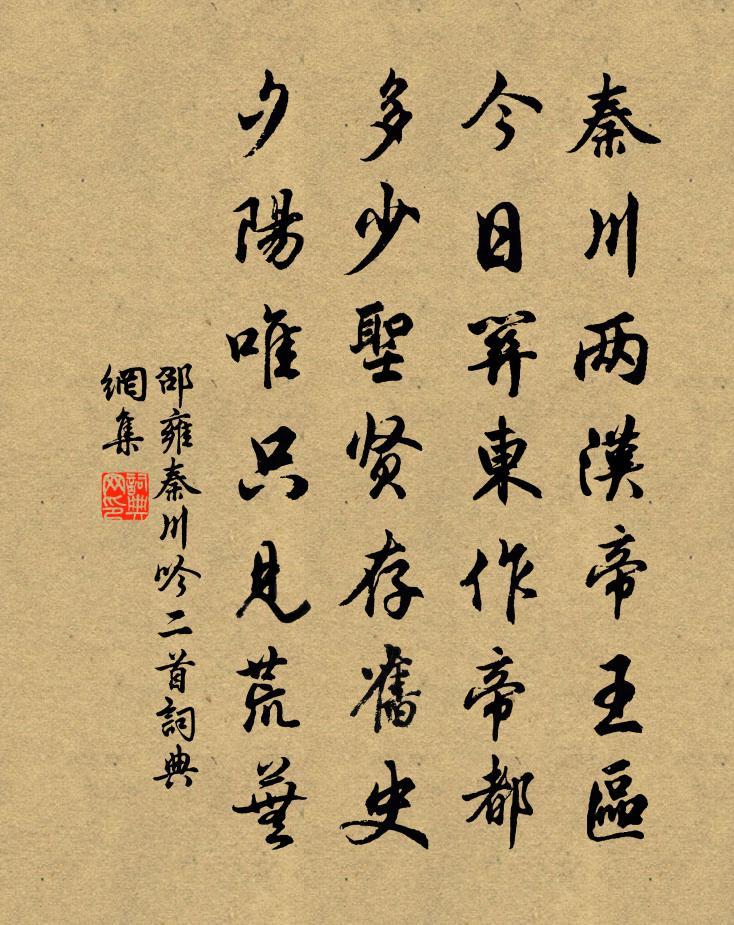 秦川两漢帝王區
今日關東作帝都
多少聖贤存舊史
夕陽唯只見荒蕪
邵雍秦川吟二首詞典
網集
詞典
网印